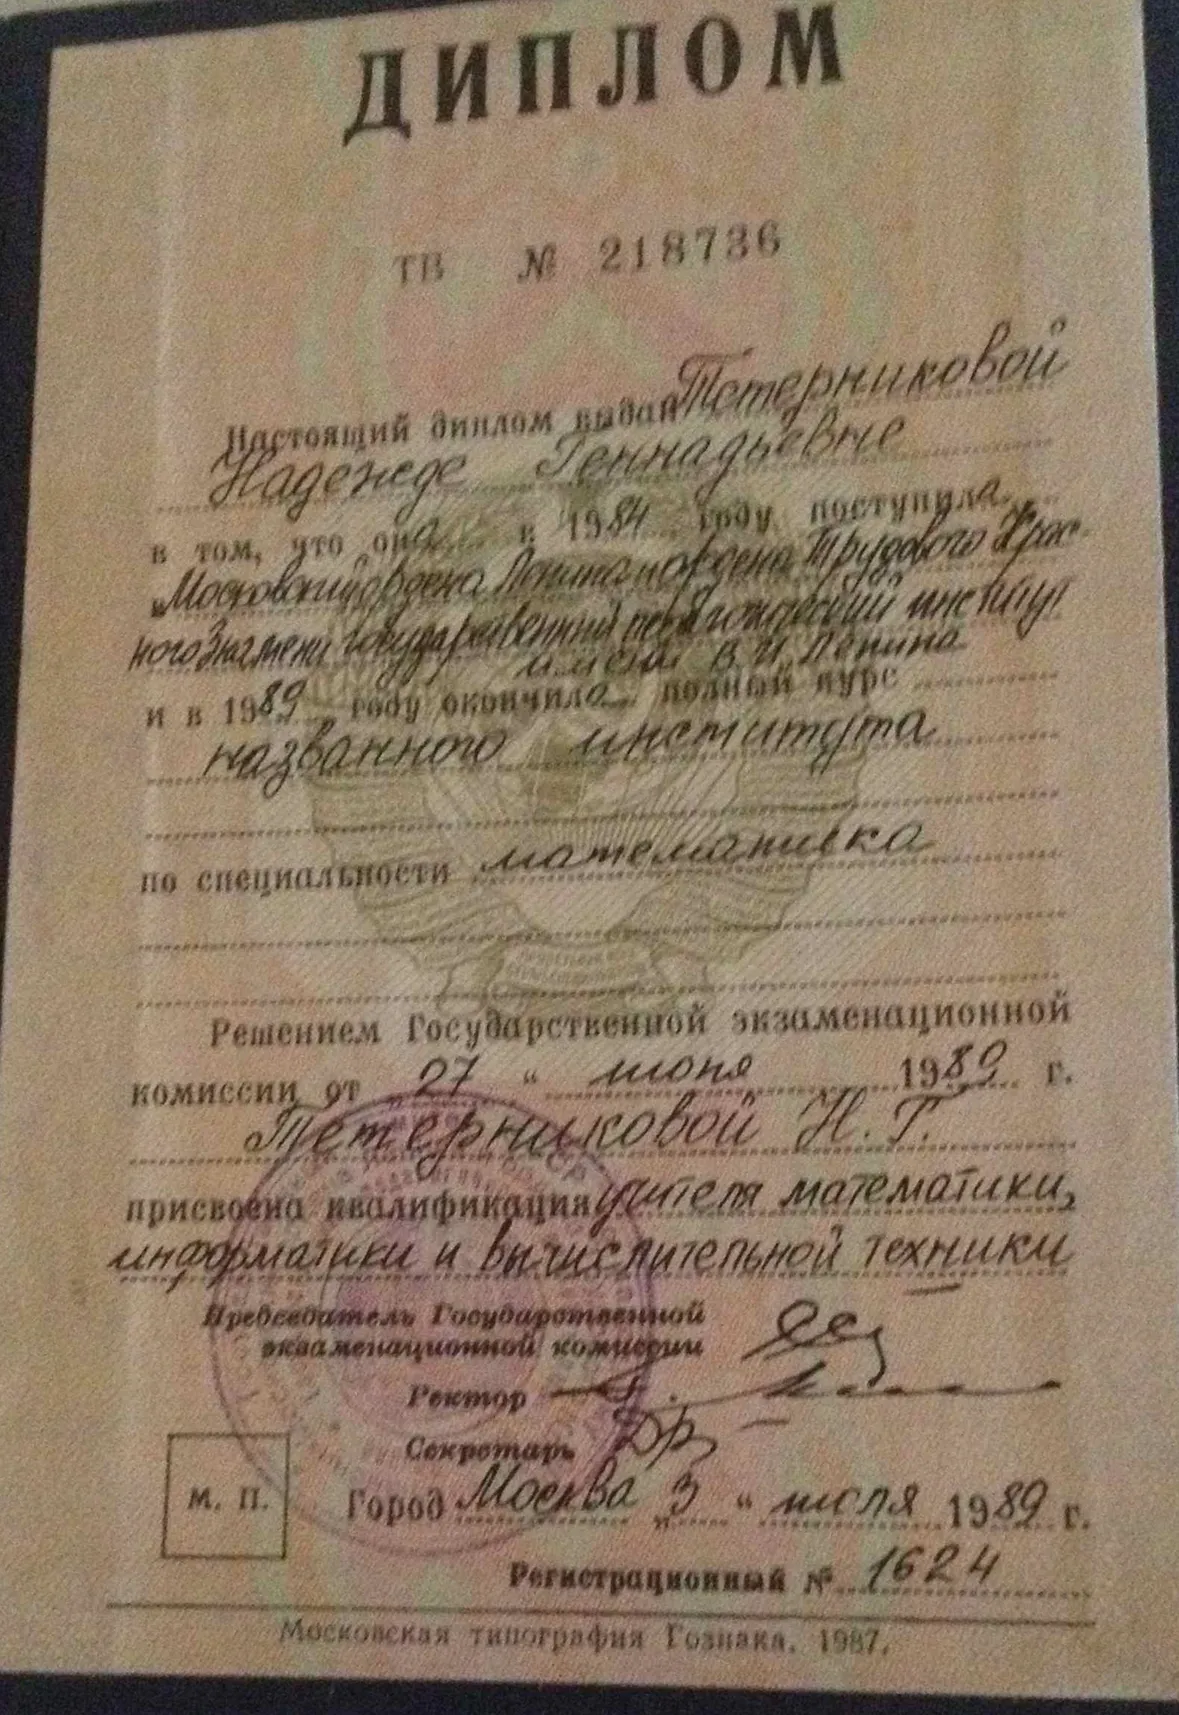 ДИПЛОМ
ТВ № 218736
Настоящий диплом выдан Тетерниковой
Надежде Геннадьевне
в том, что она в 1984 году поступила
в Московский ордена Ленина и ордена Трудового Крас-
ного Знамени государственный педагогический институт
имени В.И. Ленина
и в 1989 году окончила полный курс
названного института
по специальности математика
Решением Государственной экзаменационной
комиссии от „27“ июня 1989 г.
Тетерниковой Н. Г.
присвоена квалификация учителя математики,
информатики и вычислительной техники
Председатель Государственной
экзаменационной комиссии
Ректор
Секретарь
М. П.
Город Москва „3“ июля 1989 г.
Регистрационный № 1624
Московская типография Гознака. 1987.